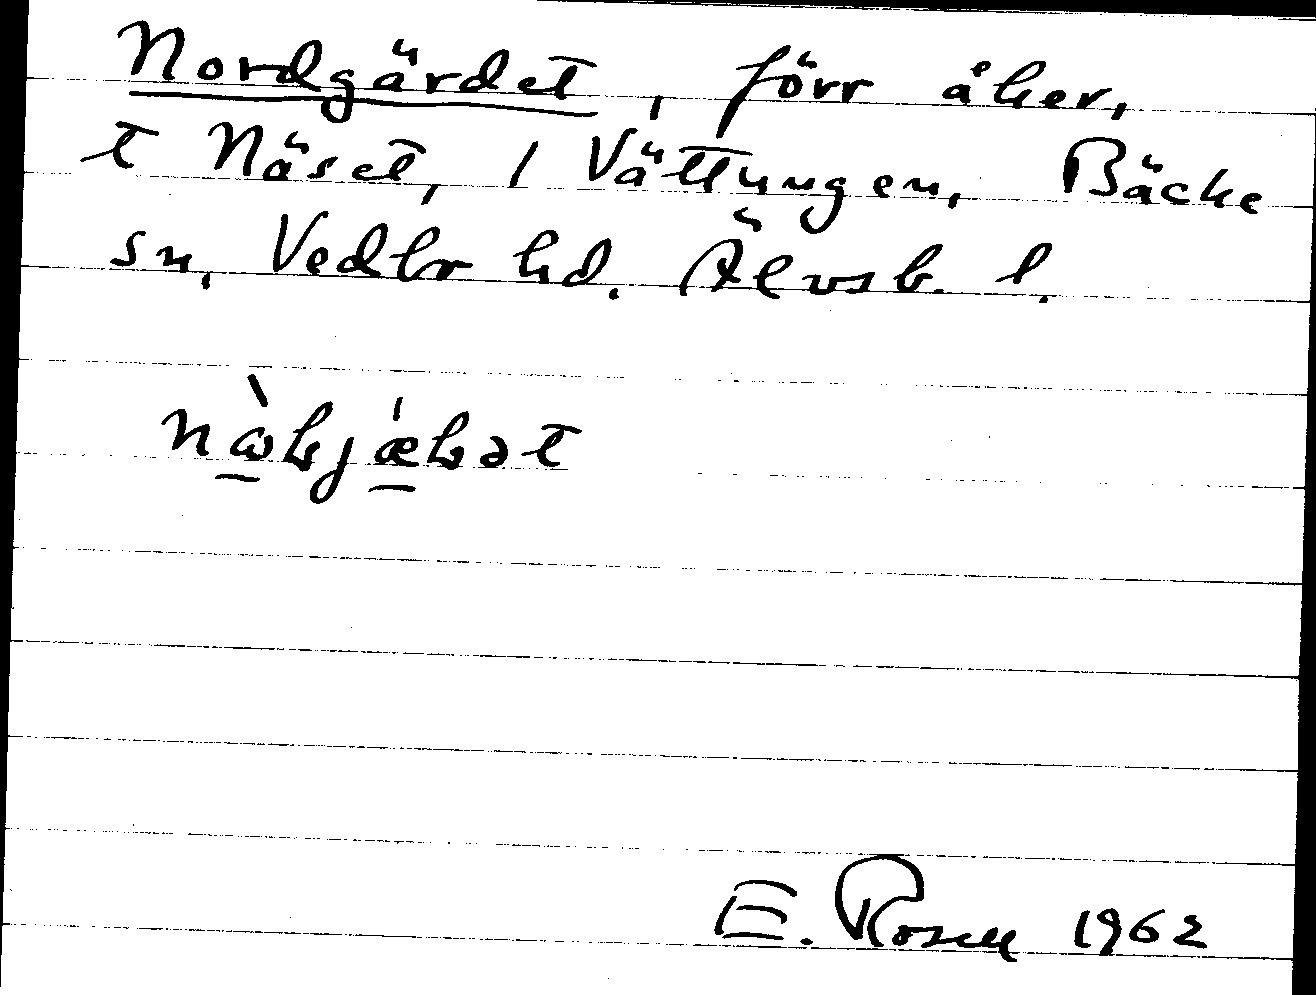 Nordgärdet, förr åker,
t Näset, / Vättungen, Bäcke
sn, Vedbo hd. Älvsb. l.
E. Rosell 1962